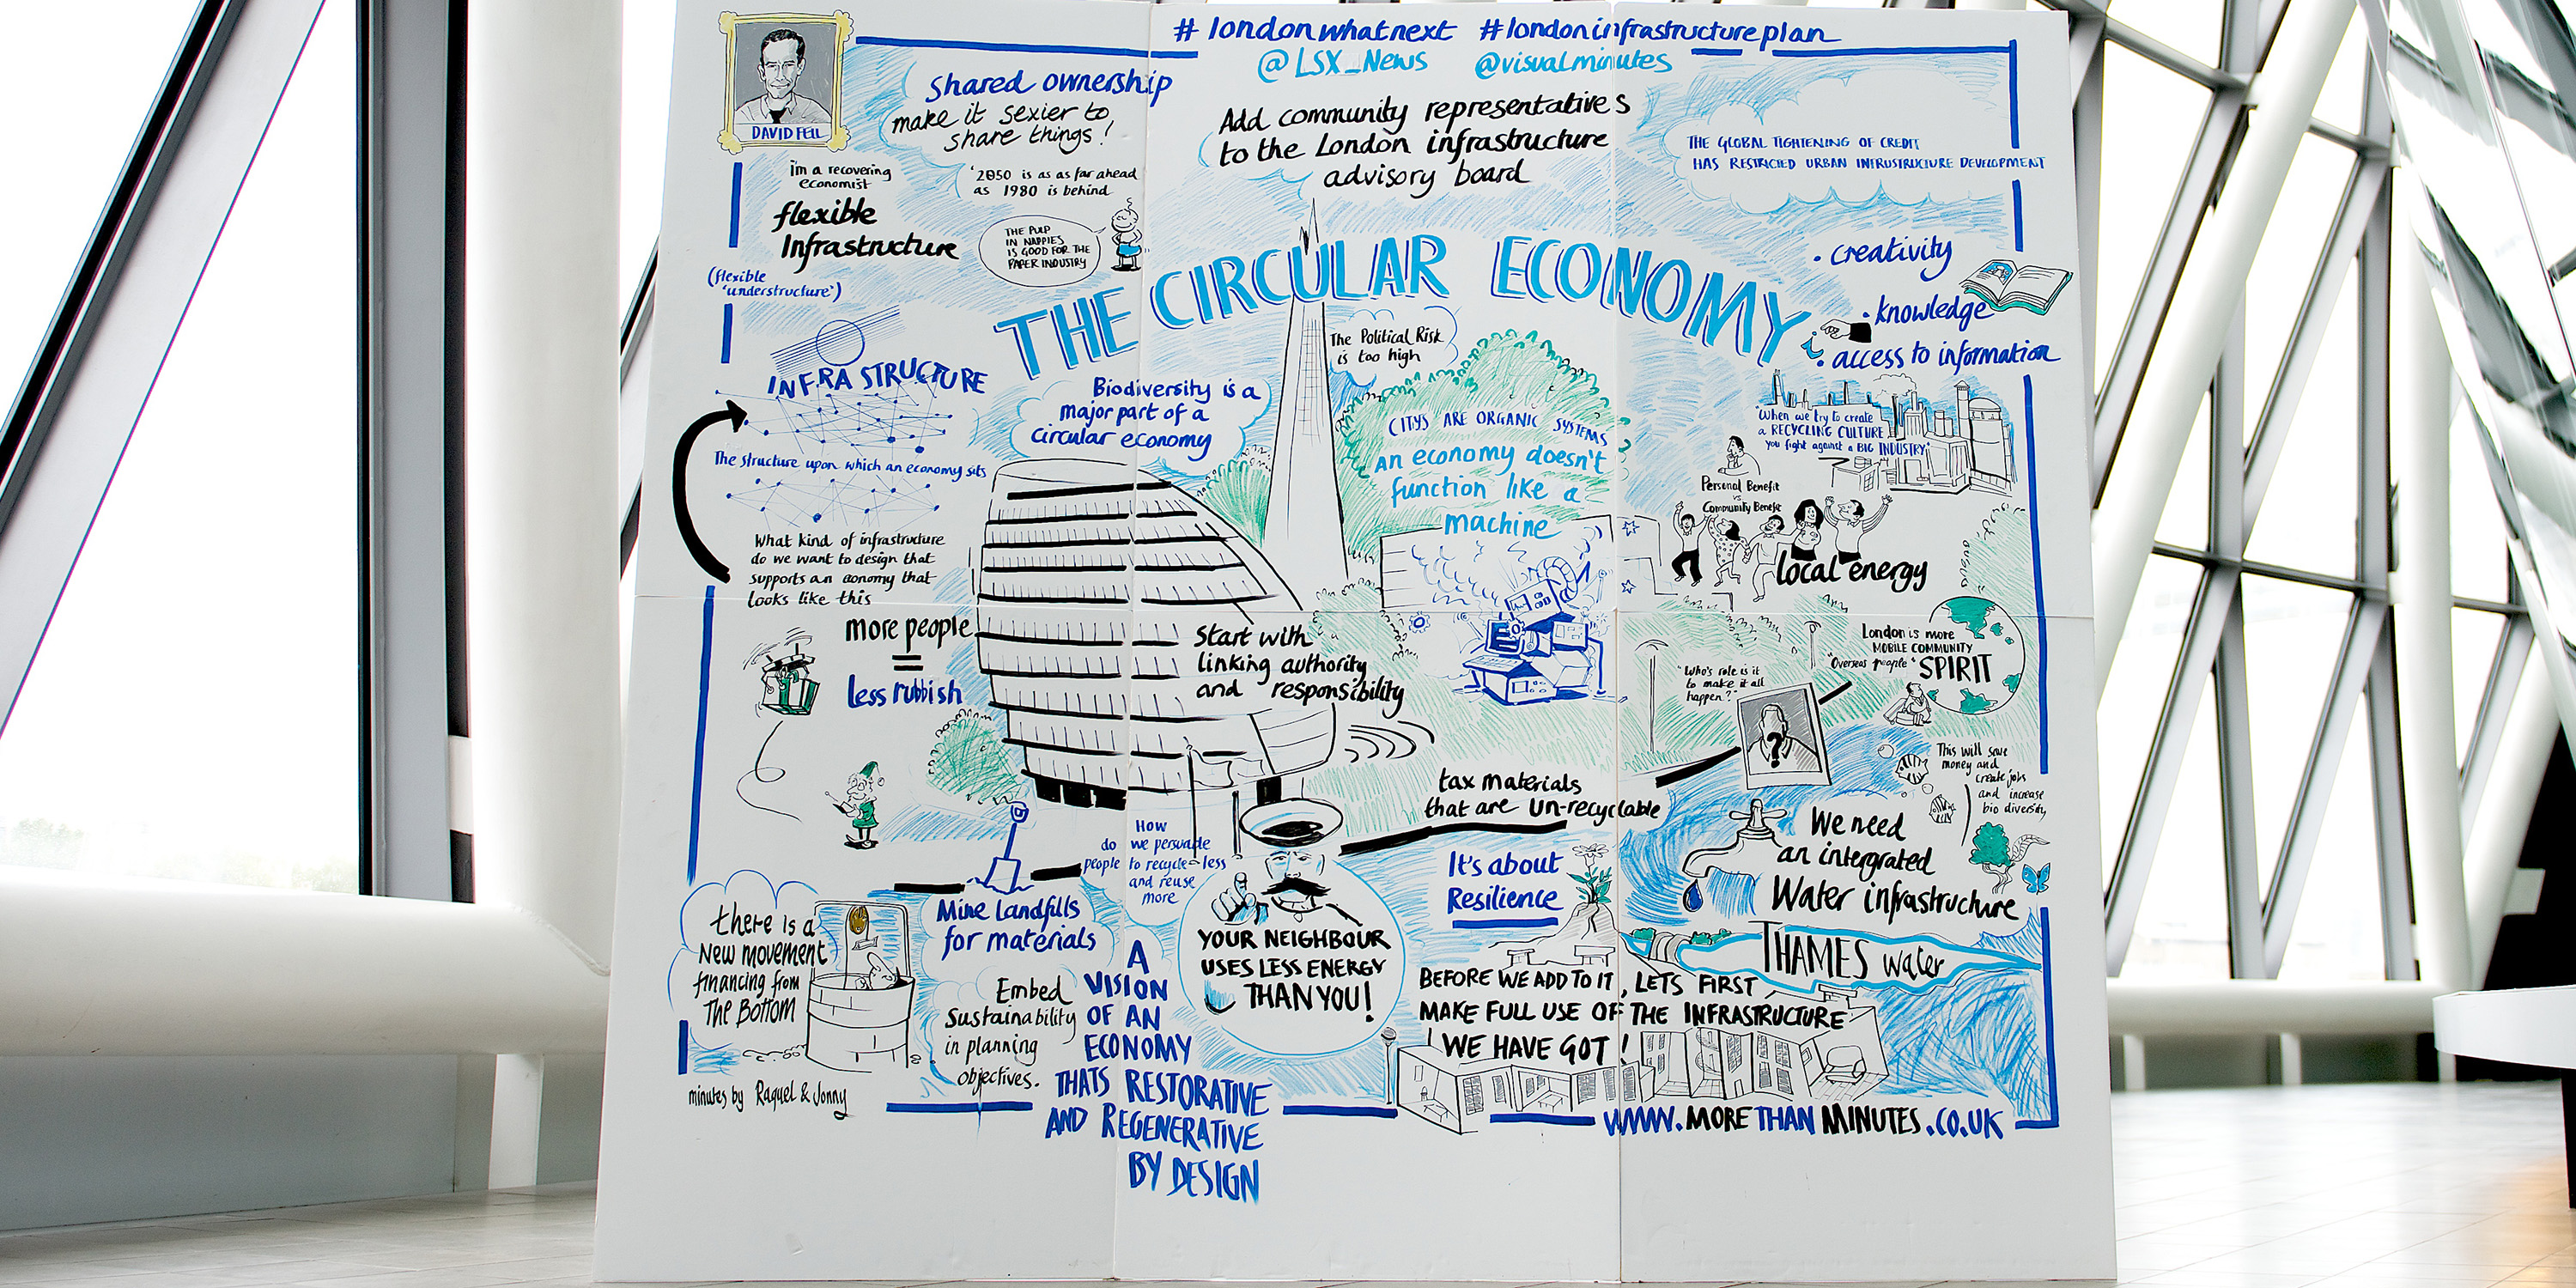 # londonwhatnext #londoninfrastructureplan
@LSX_News @visualminutes
DAVID FELL
Shared ownership
make it sexier to
share things!
Add community representatives
to the London infrastructure
advisory board
THE GLOBAL TIGHTENING OF CREDIT
HAS RESTRICTED URBAN INFRUSTRUCTURE DEVELOPMENT
i'm a recovering
economist
'2050 is as as far ahead
as 1980 is behind
flexible
Infrastructure
(flexible
'understructure')
THE PULP
IN NAPPIES
IS GOOD FOR THE
PAPER INDUSTRY
THE CIRCULAR ECONOMY
• creativity
• knowledge
• access to information
i
INFRA STRUCTURE
The structure upon which an economy sits
What kind of infrastructure
do we want to design that
supports an aonomy that
looks like this
Biodiversity is a
major part of a
circular economy
The Political Risk
is too high
CITYS ARE ORGANIC SYSTEMS
an economy doesn't
function like a
machine
'When we try to create
a RECYCLING CULTURE
you fight against a BIG INDUSTRY'
Personal Benefit
vs
Community Benefit
local energy
more people
=
less rubbish
Start with
linking authority
and responsibility
London is more
MOBILE COMMUNITY
"Overseas people"
SPIRIT
"Who's role is it
to make it all
happen?"
?
tax materials
that are un-recyclable
This will save
money and
create jobs
and increase
bio diversity
We need
an intergrated
Water infrastructure
THAMES water
How
do we persuade
people to recycle less
and reuse
more
It's about
Resilience
Mine landfills
for materials
there is a
New movement
financing from
The Bottom
YOUR NEIGHBOUR
USES LESS ENERGY
THAN YOU!
Embed
Sustainability
in planning
objectives.
A
VISION
OF AN
ECONOMY
THATS RESTORATIVE
AND REGENERATIVE
BY DESIGN
BEFORE WE ADD TO IT, LETS FIRST
MAKE FULL USE OF THE INFRASTRUCTURE
WE HAVE GOT!
minutes by Raquel & Jonny
WWW.MORETHANMINUTES.CO.UK